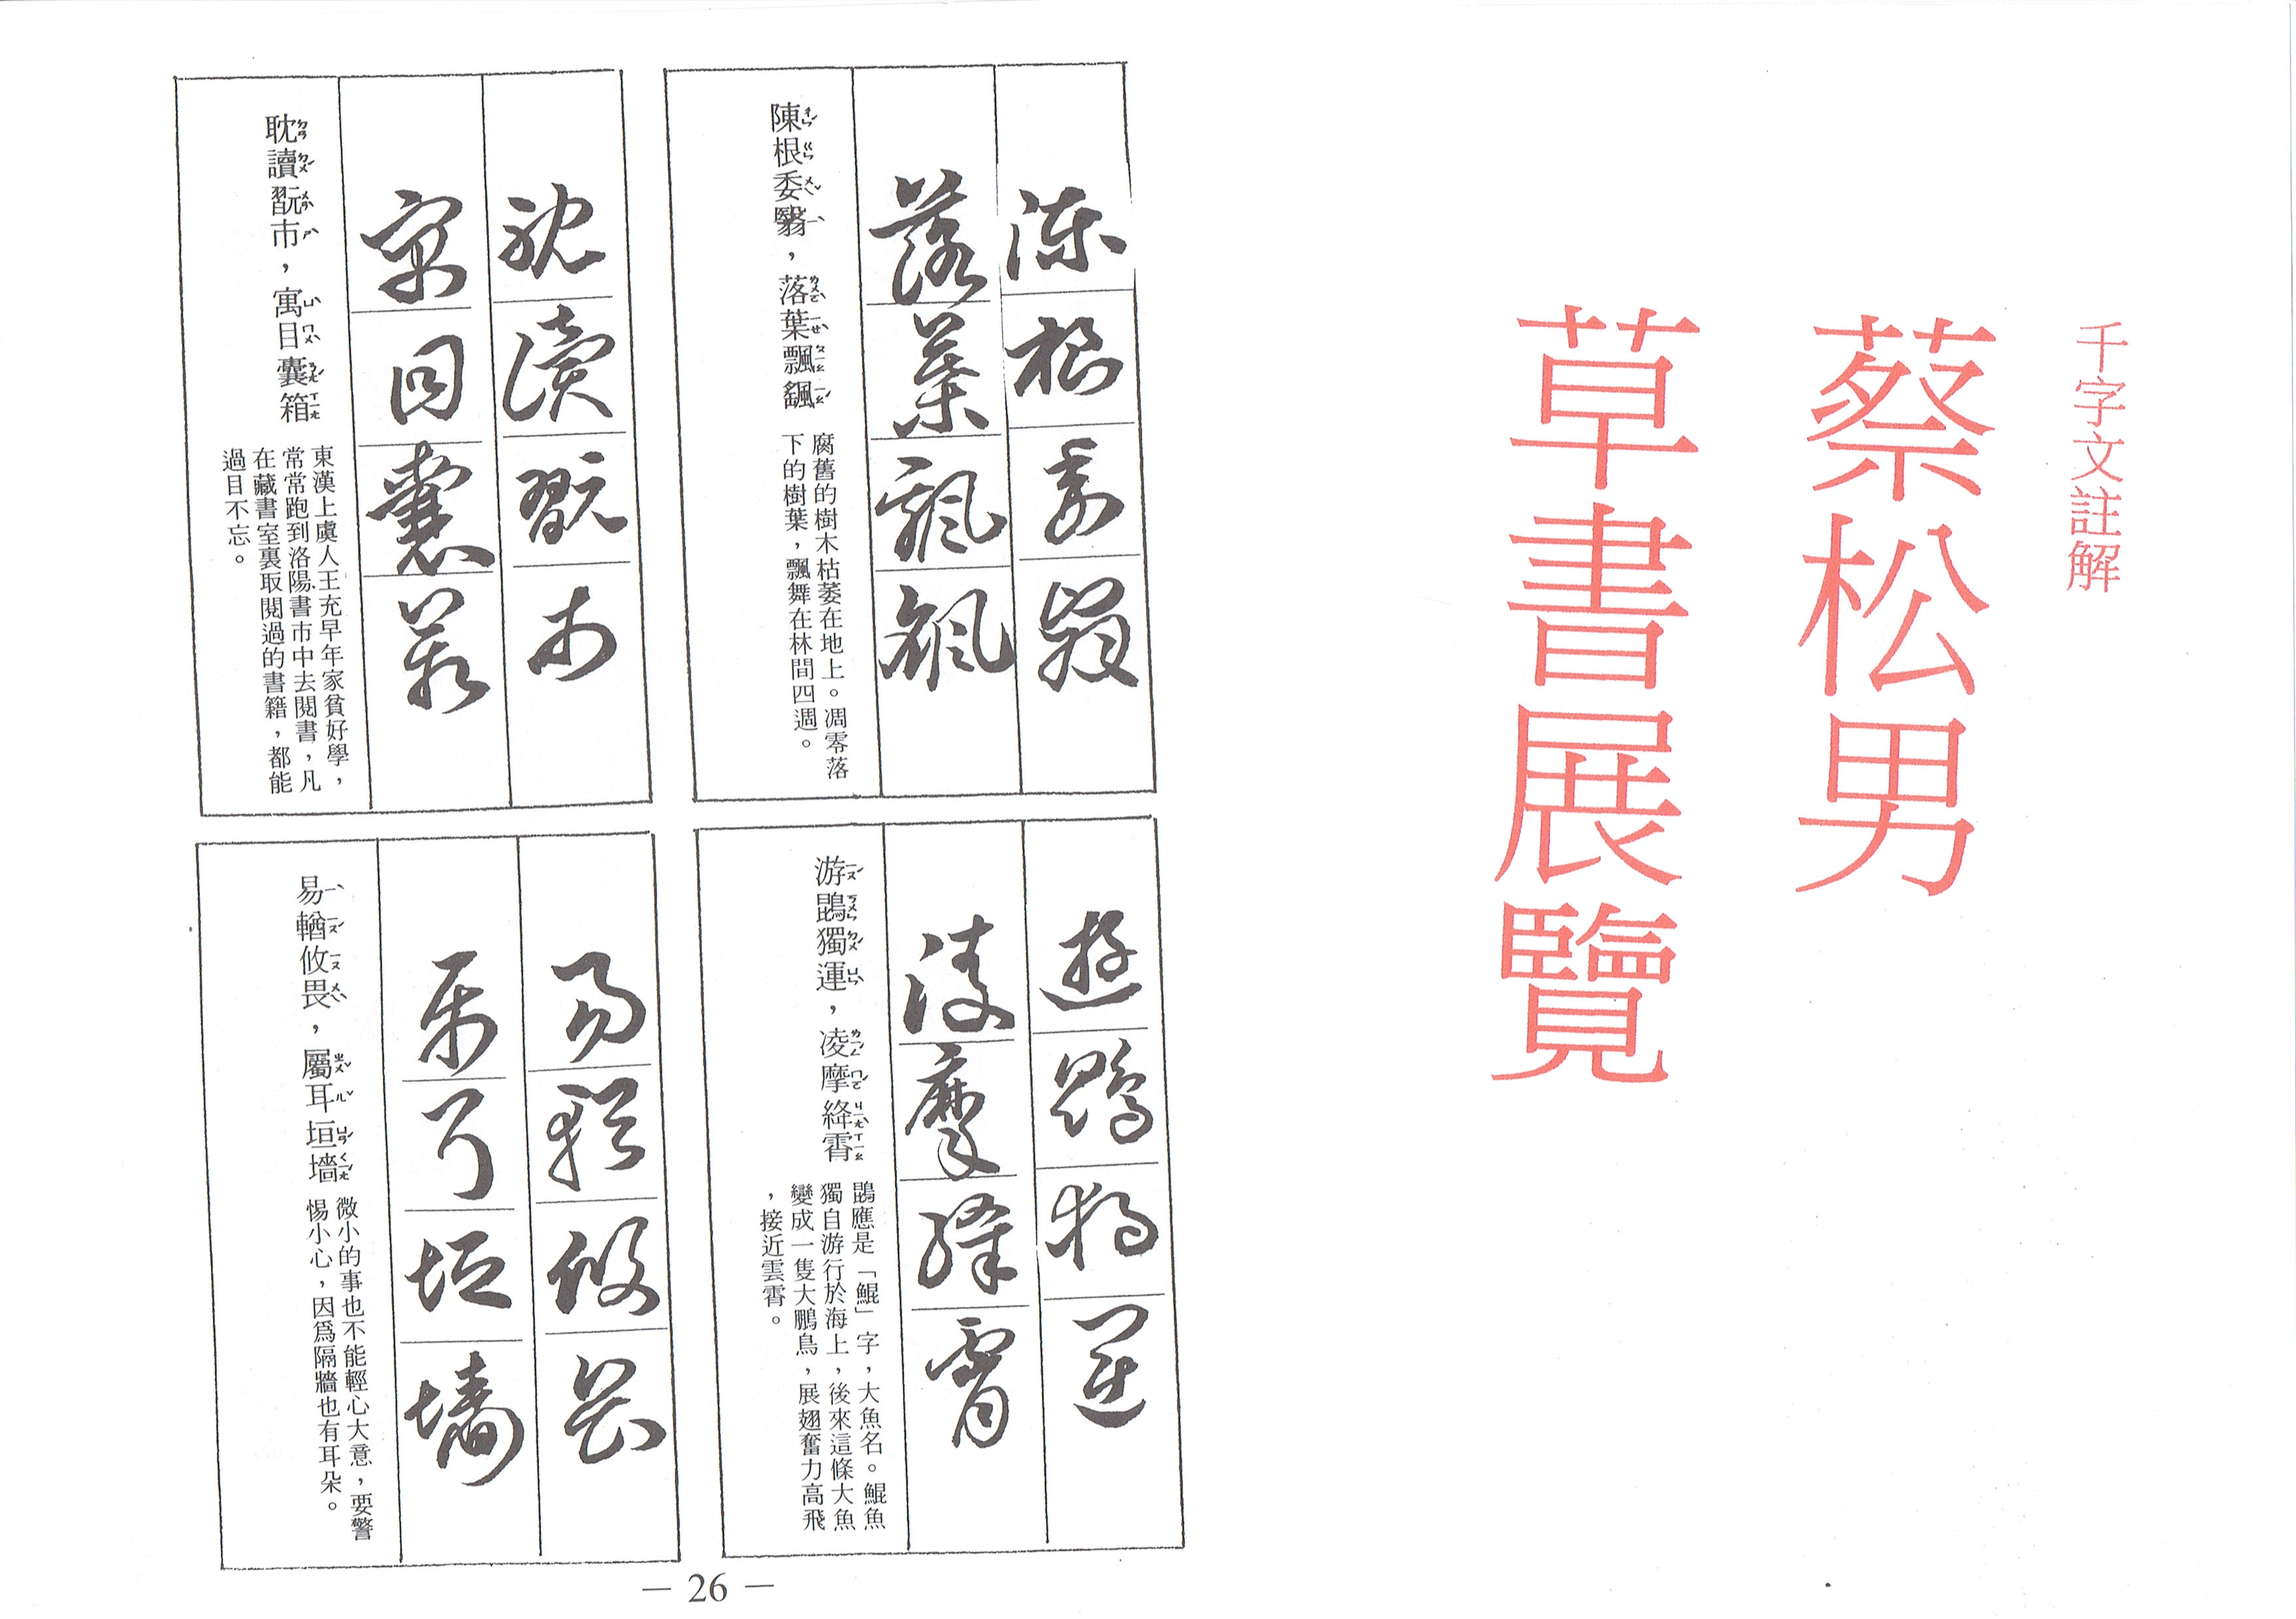 千字文註解
蔡松男
草書展覽
陳根委翳
落葉飄颻
陳根委翳，落葉飄颻
ㄔㄣˊ ㄍㄣ ㄨㄟˇ ㄧˋ ㄌㄨㄛˋ ㄧㄝˋ ㄆㄧㄠ ㄧㄠˊ
腐舊的樹木枯萎在地上。凋零落
下的樹葉，飄舞在林間四週。
遊鵾獨運
凌摩絳霄
游鵾獨運，凌摩絳霄
ㄧㄡˊ ㄎㄨㄣ ㄉㄨˊ ㄩㄣˋ ㄌㄧㄥˊ ㄇㄛˊ ㄐㄧㄤˋ ㄒㄧㄠ
鵾應是「鯤」字，大魚名。鯤魚
獨自游行於海上，後來這條大魚
變成一隻大鵬鳥，展翅奮力高飛
，接近雲霄。
耽讀翫市
寓目囊箱
耽讀翫市，寓目囊箱
ㄉㄢ ㄉㄨˊ ㄨㄢˋ ㄕˋ ㄩˋ ㄇㄨˋ ㄋㄤˊ ㄒㄧㄤ
東漢上虞人王充早年家貧好學，
常常跑到洛陽書市中去閱書，凡
在藏書室裏取閱過的書籍，都能
過目不忘。
易輶攸畏
屬耳垣墻
易輶攸畏，屬耳垣墻
ㄧˋ ㄧㄡˊ ㄧㄡ ㄨㄟˋ ㄓㄨˇ ㄦˇ ㄩㄢˊ ㄑㄧㄤˊ
微小的事也不能輕心大意，要警
惕小心，因爲隔牆也有耳朵。
— 26 —